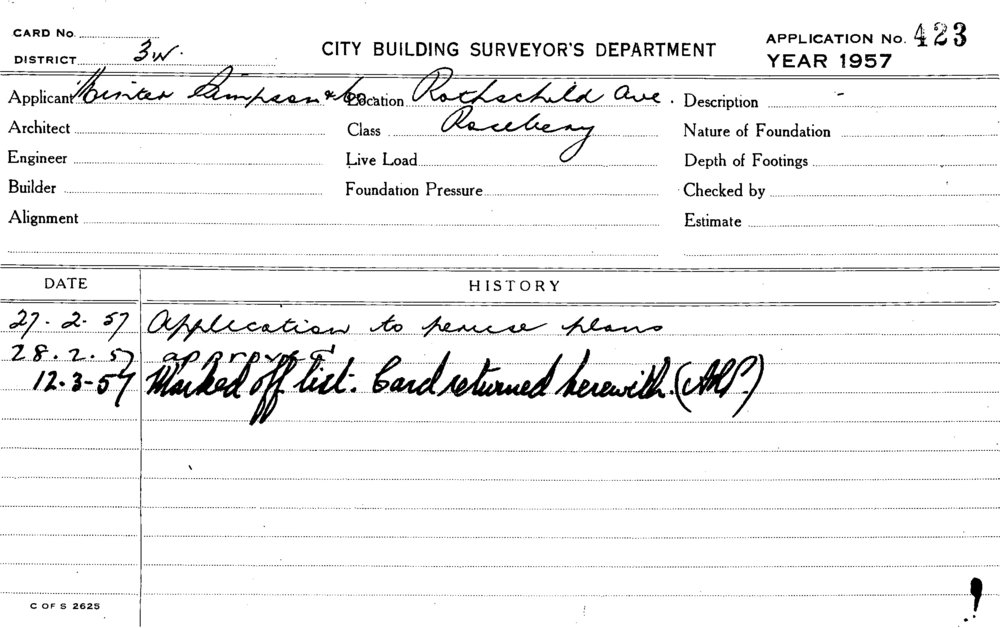 CARD No.
DISTRICT 3W.
CITY BUILDING SURVEYOR'S DEPARTMENT
APPLICATION No. 423
YEAR 1957
Applicant Minter Simpson & Co. Location Rothschild Ave. Description -
Architect Class Rosebery Nature of Foundation
Engineer Live Load Depth of Footings
Builder Foundation Pressure Checked by
Alignment Estimate
DATE HISTORY
27.2.57 Application to peruse plans
28.2.57 approved
12-3-57 Marked off list. Card returned herewith. (AHP)
C OF S 2625